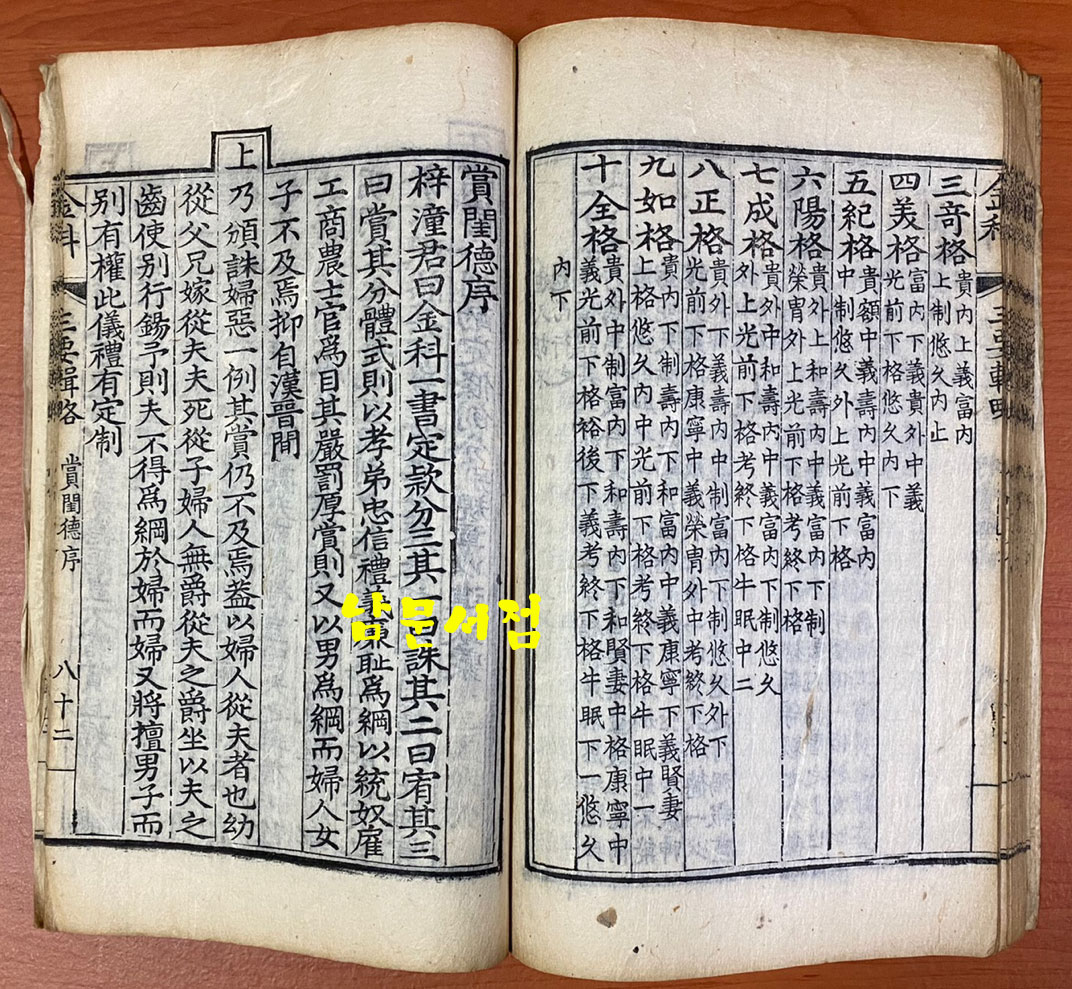 金科 三要輯略
三奇格 貴內上義富內
上制悠久內止
四美格 富內下義貴外中義
光前下格悠久內下
五紀格 貴額中義壽內中義富內
中制悠久外上光前下格
六陽格 貴外上和壽內中義富內下制
榮冑外上光前下格考終下格
七成格 貴外中和壽內中義富內下制悠久
外上光前下格考終下格牛眠中二
八正格 貴外下義壽內中制富內下制悠久外下
光前下格康寧中義榮冑外中考終下格
九如格 貴內下制壽內下和富內中義康寧下義賢妻
上格悠久內中光前下格考終下格牛眠中一
十全格 貴外中制富內下和壽內下和賢妻中格康寧中
義光前下格裕後下義考終下格牛眠下一悠久
內下
賞閨德序
梓潼君曰金科一書定款分三其一曰誅其二曰宥其三
曰賞其分體式則以孝弟忠信禮義廉恥爲綱以統奴雇
工商農士官爲目其嚴罰厚賞則又以男爲綱而婦人女
子不及焉抑自漢晉間
上
乃頒誅婦惡一例其賞仍不及焉蓋以婦人從夫者也幼
從父兄嫁從夫夫死從子婦人無爵從夫之爵坐以夫之
齒使別行錫予則夫不得爲綱於婦而婦又將擅男子而
別有權此儀禮有定制
金科 三要輯略 賞閨德序 八十二
남문서점